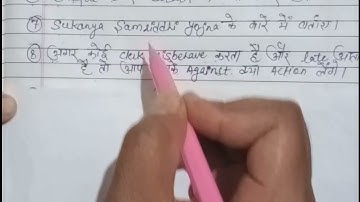 ⑦ Sukanya Samriddhi Yojna के बारे में बतायें।
⑧ अगर कोई Clerk करता है और late आता
है तो आप Against क्या Action लेंगे।